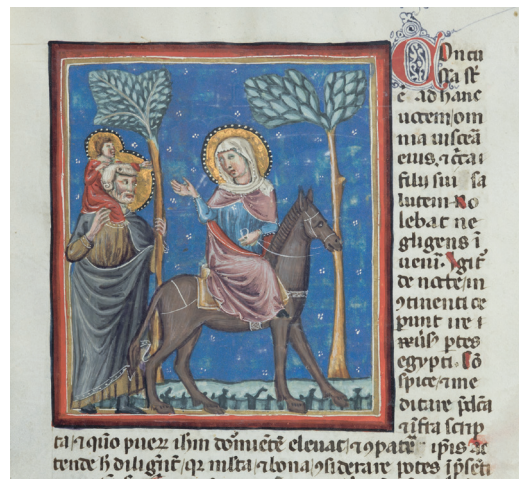 Concu
ssa st
e ad hanc
uocem om
nia uiscera
eius, ⁊ cͣca i
filij sui sa
lutem no
lebat ne
gligens i
ueniri. Igit̉
de nocte in
ꝯtinenti ce
perunt ire
uersus ptes
egypti. Cō
spice, ⁊ me
ditare p̄dc̄a
⁊ infra scrip
ta, ⁊ quo puerum ihm dormiētē eleuat, ⁊ ꝯpatere ipsis at
tende h̄ diligēter, qr multa, ⁊ bona, ꝯsiderare potes ī pn̄ti